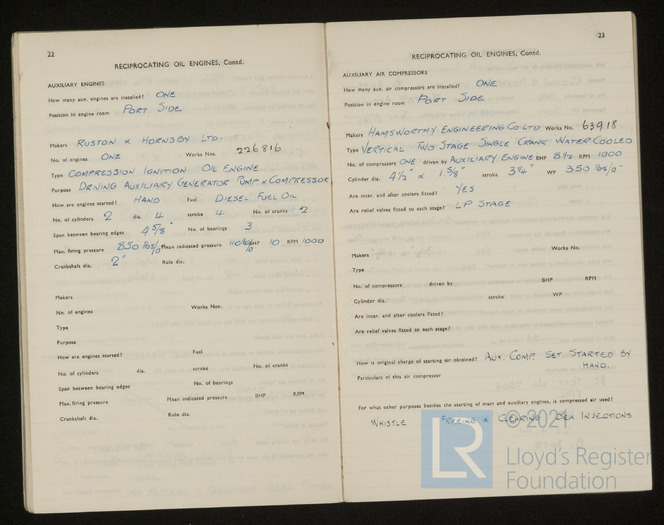 22
RECIPROCATING OIL ENGINES, Contd.
AUXILIARY ENGINES
How many aux. engines are installed? ONE
Position in engine room PORT SIDE
Makers RUSTON & HORNSBY LTD.
No. of engines ONE Works Nos. 226816
Type COMPRESSION IGNITION OIL ENGINE
Purpose DRIVING AUXILIARY GENERATOR PUMP & COMPRESSOR
How are engines started? HAND Fuel DIESEL FUEL OIL
No. of cylinders 2 dia. 4 stroke 4 No. of cranks 2
Span between bearing edges 4 5/8" No. of bearings 3
Max. firing pressure 850 lbs/□" Mean indicated pressure 110 lbs/□" BHP 10 RPM 1000
Crankshaft dia. 2" Rule dia.
Makers
No. of engines Works Nos.
Type
Purpose
How are engines started? Fuel
No. of cylinders dia. stroke No. of cranks
Span between bearing edges No. of bearings
Max. firing pressure Mean indicated pressure BHP RPM
Crankshaft dia. Rule dia.
23
RECIPROCATING OIL ENGINES, Contd.
AUXILIARY AIR COMPRESSORS
How many aux. air compressors are installed? ONE
Position in engine room PORT SIDE
Makers HAMSWORTHY ENGINEERING CO LTD Works No. 63918
Type VERTICAL TWO STAGE SINGLE CRANK WATER COOLED
No. of compressors ONE driven by AUXILIARY ENGINE BHP 8 1/2 RPM 1000
Cylinder dia. 4 1/2" & 1 5/8" stroke 3 1/4" WP 350 lbs/□"
Are inter. and after coolers fitted? YES
Are relief valves fitted to each stage? LP STAGE
Makers Works No.
Type
No. of compressors driven by BHP RPM
Cylinder dia. stroke WP
Are inter. and after coolers fitted?
Are relief valves fitted to each stage?
How is original charge of starting air obtained? AUX. COMP. SET STARTED BY
HAND.
Particulars of this air compressor
For what other purposes besides the starting of main and auxiliary engines, is compressed air used?
WHISTLE & CLEARING SEA INJECTIONS
© 2021
LR
Lloyd's Register
Foundation